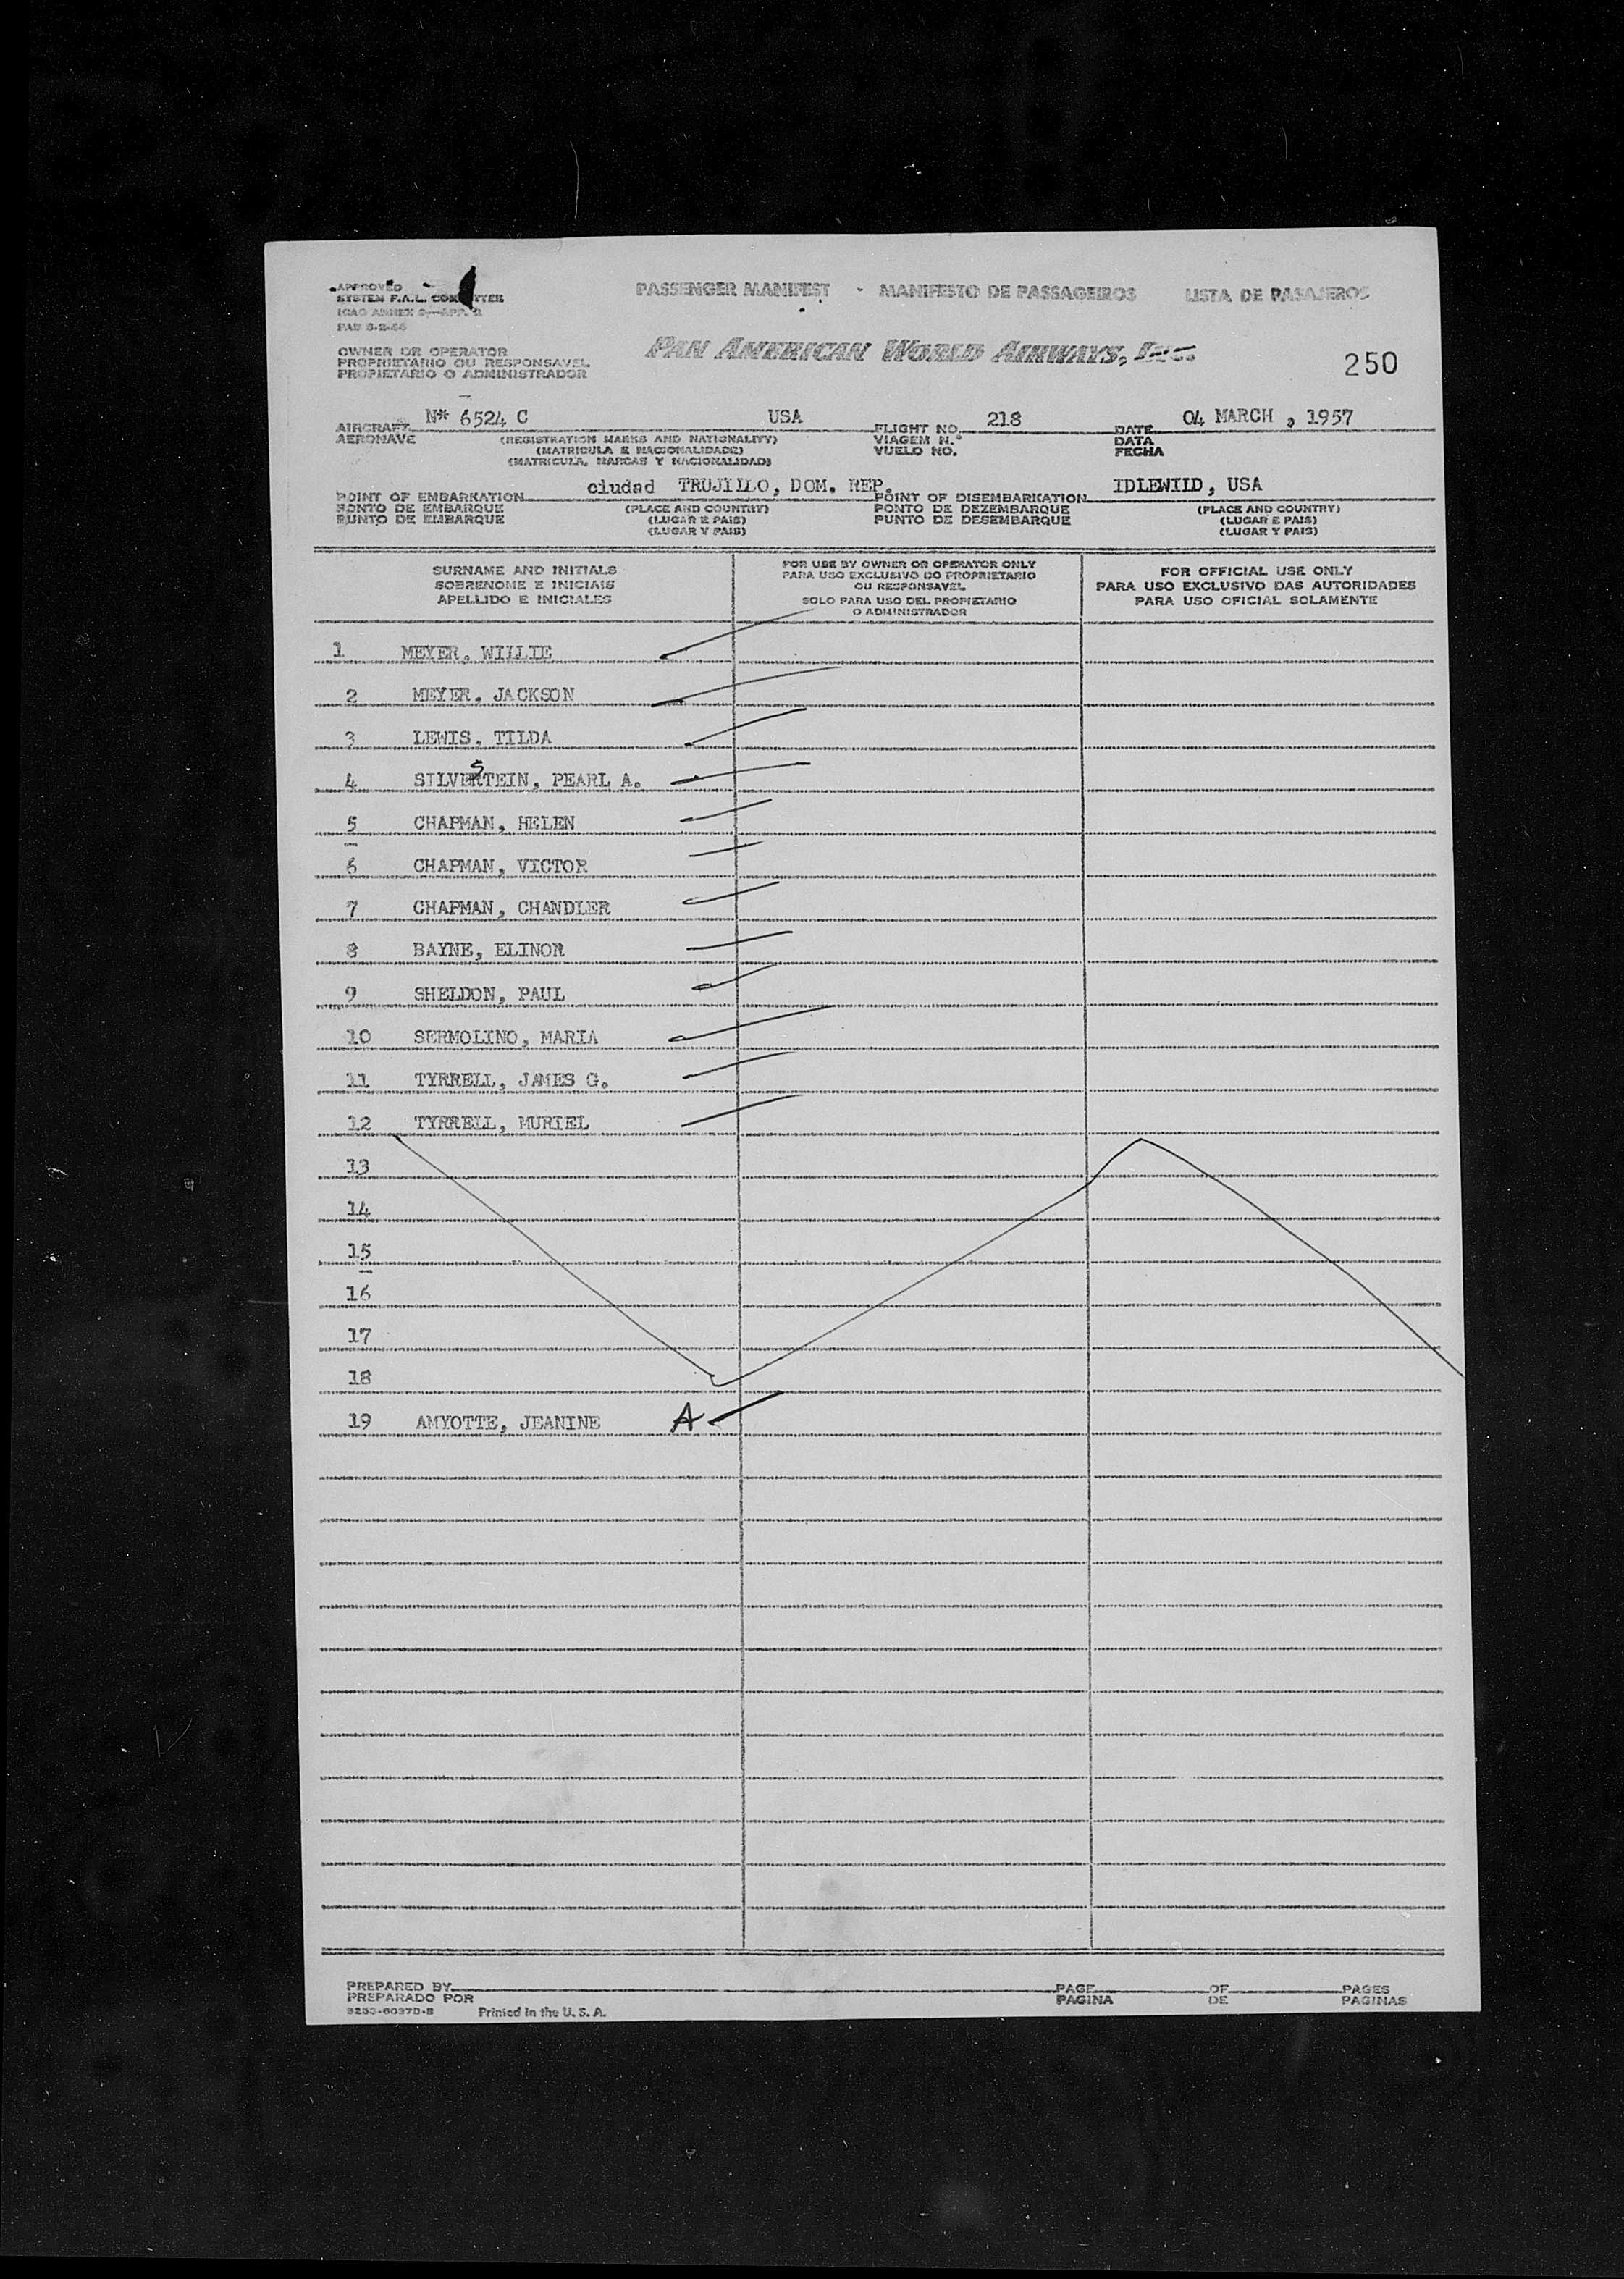 APPROVED
SYSTEM F.A.L. COMMITTEE
ICAO ANNEX 9—APP. 2
PASSENGER MANIFEST - MANIFESTO DE PASSAGEIROS LISTA DE PASAJEROS
OWNER OR OPERATOR
PROPRIETARIO OU RESPONSAVEL
PROPIETARIO O ADMINISTRADOR
PAN AMERICAN WORLD AIRWAYS, INC.
250
AIRCRAFT N* 6524 C USA FLIGHT NO. 218 DATE 04 MARCH , 1957
AERONAVE (REGISTRATION MARKS AND NATIONALITY) VIAGEM N.º DATA
(MATRICULA E NACIONALIDADE) VUELO NO. FECHA
(MATRICULA, MARCAS Y NACIONALIDAD)
POINT OF EMBARKATION ciudad TRUJILLO, DOM. REP. POINT OF DISEMBARKATION IDLEWILD, USA
PONTO DE EMBARQUE (PLACE AND COUNTRY) PONTO DE DEZEMBARQUE (PLACE AND COUNTRY)
PUNTO DE EMBARQUE (LUGAR E PAIS) PUNTO DE DESEMBARQUE (LUGAR E PAIS)
(LUGAR Y PAIS) (LUGAR Y PAIS)
SURNAME AND INITIALS
SOBRENOME E INICIAIS
APELLIDO E INICIALES
FOR USE BY OWNER OR OPERATOR ONLY
PARA USO EXCLUSIVO DO PROPRIETARIO
OU RESPONSAVEL
SOLO PARA USO DEL PROPIETARIO
O ADMINISTRADOR
FOR OFFICIAL USE ONLY
PARA USO EXCLUSIVO DAS AUTORIDADES
PARA USO OFICIAL SOLAMENTE
1 MEYER, WILLIE
2 MEYER. JACKSON
3 LEWIS, TILDA
S
4 SILVERTEIN, PEARL A.
5 CHAPMAN, HELEN
6 CHAPMAN, VICTOR
7 CHAPMAN, CHANDLER
8 BAYNE, ELINOR
9 SHELDON, PAUL
10 SERMOLINO, MARIA
11 TYRRELL, JAMES G.
12 TYRRELL, MURIEL
13
14
15
16
17
18
19 AMYOTTE, JEANINE A
PREPARED BY PAGE OF PAGES
PREPARADO POR PAGINA DE PAGINAS
Printed in the U. S. A.